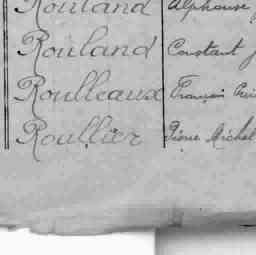 Rouland Alphonse
Rouland Constant
Roulleaux François
Roullier Pierre Michel